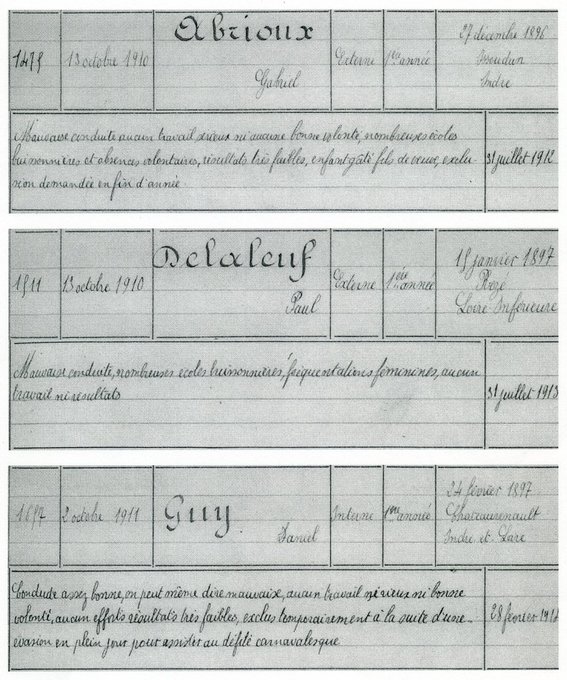 1475 13 octobre 1910 Abrioux Gabriel Externe 1ère année 27 décembre 1896 Issoudun Indre
Mauvaise conduite aucun travail sérieux ni aucune bonne volonté, nombreuses écoles
buissonnières et absences volontaires, résultats très faibles, enfant gâté fils de veuve, exclu-
sion demandée en fin d'année.
31 juillet 1912
1511 13 octobre 1910 Delaleuf Paul Externe 1ère année 15 janvier 1897 Rezé Loire Inférieure
Mauvaise conduite, nombreuses écoles buissonnières, fréquentations féminines, aucun
travail ni résultats
31 juillet 1913
1657 2 octobre 1911 Guy Daniel Interne 1ère année 24 février 1897 Chateaurenault Indre et Loire
Conduite assez bonne, on peut même dire mauvaise, aucun travail sérieux ni bonne
volonté, aucun efforts résultats très faibles, exclus temporairement à la suite d'une
évasion en plein jour pour assister au défilé carnavalesque
28 février 1912